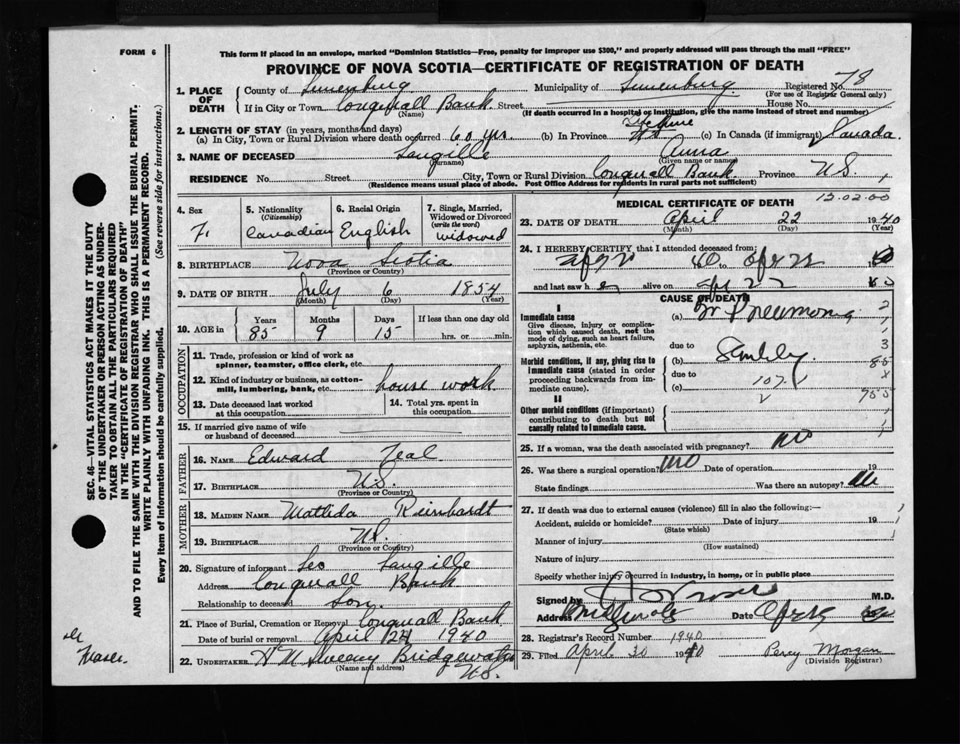 FORM 6
This form if placed in an envelope, marked "Dominion Statistics—Free, penalty for improper use $300," and properly addressed will pass through the mail "FREE"
PROVINCE OF NOVA SCOTIA—CERTIFICATE OF REGISTRATION OF DEATH
1. PLACE OF DEATH
County of Lunenburg Municipality of Lunenburg Registered No. 78
(For use of Registrar General only)
If in City or Town Conquall Bank Street House No.
(Name) (If death occurred in a hospital or institution, give the name instead of street and number)
2. LENGTH OF STAY (in years, months and days)
(a) In City, Town or Rural Division where death occurred 60 yrs. (b) In Province (c) In Canada (if immigrant) Canada.
3. NAME OF DECEASED Langille Anna
(Surname) (Given name or names)
RESIDENCE No. Street City, Town or Rural Division Conquall Bank Province N.S.
(Residence means usual place of abode. Post Office Address for residents in rural parts not sufficient)
4. Sex
F.
5. Nationality (Citizenship)
Canadian
6. Racial Origin
English
7. Single, Married, Widowed or Divorced (write the word)
widowed
8. BIRTHPLACE Nova Scotia
(Province or Country)
9. DATE OF BIRTH July 6 1854
(Month) (Day) (Year)
10. AGE in
Years Months Days If less than one day old
85 9 15 hrs. or min.
OCCUPATION
11. Trade, profession or kind of work as spinner, teamster, office clerk, etc.
12. Kind of industry or business, as cotton-mill, lumbering, bank, etc. house work
13. Date deceased last worked at this occupation
14. Total yrs. spent in this occupation
15. If married give name of wife or husband of deceased
FATHER
16. NAME Edward Zeal
17. BIRTHPLACE N.S.
(Province or Country)
MOTHER
18. MAIDEN NAME Matilda Reinhardt
19. BIRTHPLACE N.S.
(Province or Country)
20. Signature of informant Leo Langille
Address Conquall Bank
Relationship to deceased Son.
21. Place of Burial, Cremation or Removal Conquall Bank
Date of burial or removal April 24 1940
22. UNDERTAKER Bridgewater
(Name and address) N.S.
MEDICAL CERTIFICATE OF DEATH
12.02.00
23. DATE OF DEATH April 22 1940
(Month) (Day) (Year)
24. I HEREBY CERTIFY that I attended deceased from:
and last saw h alive on
CAUSE OF DEATH
Immediate cause
Give disease, injury or complication which caused death, not the mode of dying, such as heart failure, asphyxia, asthenia, etc.
(a) Pneumonia
due to
Morbid conditions, if any, giving rise to immediate cause (stated in order proceeding backwards from immediate cause).
(b)
due to
(c) 107
II
Other morbid conditions (if important) contributing to death but not causally related to immediate cause.
25. If a woman, was the death associated with pregnancy? no
26. Was there a surgical operation? no Date of operation 19
State findings Was there an autopsy? no
27. If death was due to external causes (violence) fill in also the following:—
Accident, suicide or homicide? Date of injury 19
(State which)
Manner of injury
(How sustained)
Nature of injury
Specify whether injury occurred in industry, in home, or in public place
Signed by M.D.
Address Date
28. Registrar's Record Number 1940
29. Filed April 30 1940 Percy Morgan
(Division Registrar)
SEC. 46—VITAL STATISTICS ACT MAKES IT THE DUTY
OF THE UNDERTAKER OR PERSON ACTING AS UNDER-
TAKER TO OBTAIN ALL THE PARTICULARS REQUIRED
IN THE "CERTIFICATE OF REGISTRATION OF DEATH"
AND TO FILE THE SAME WITH THE DIVISION REGISTRAR WHO SHALL ISSUE THE BURIAL PERMIT.
WRITE PLAINLY WITH UNFADING INK. THIS IS A PERMANENT RECORD.
Every item of Information should be carefully supplied. (See reverse side for instructions.)
Dr
Fraser.